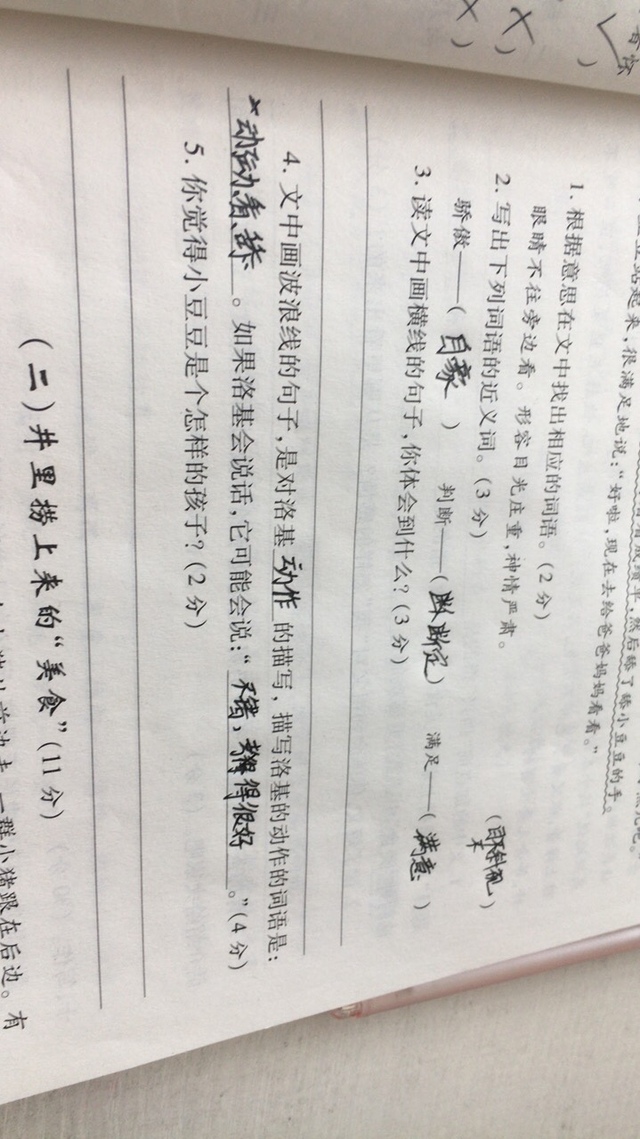 很满足地说：“好啦，现在去给爸爸妈妈看看。”
然后舔了舔小豆豆的手。
1. 根据意思在文中找出相应的词语。（2分）
眼睛不往旁边看。形容目光庄重，神情严肃。
（目不斜视）
2. 写出下列词语的近义词。（3分）
骄傲——（ 自豪 ） 判断——（ 断定 ） 满足——（ 满意 ）
3. 读文中画横线的句子，你体会到什么？（3分）
4. 文中画波浪线的句子，是对洛基 动作 的描写，描写洛基的动作的词语是：
动、看、舔 。如果洛基会说话，它可能会说：“ 不错，得很好 。”（4分）
5. 你觉得小豆豆是个怎样的孩子？（2分）
（二）井里捞上来的“美食”（11分）
一群小猪跟在后边。有